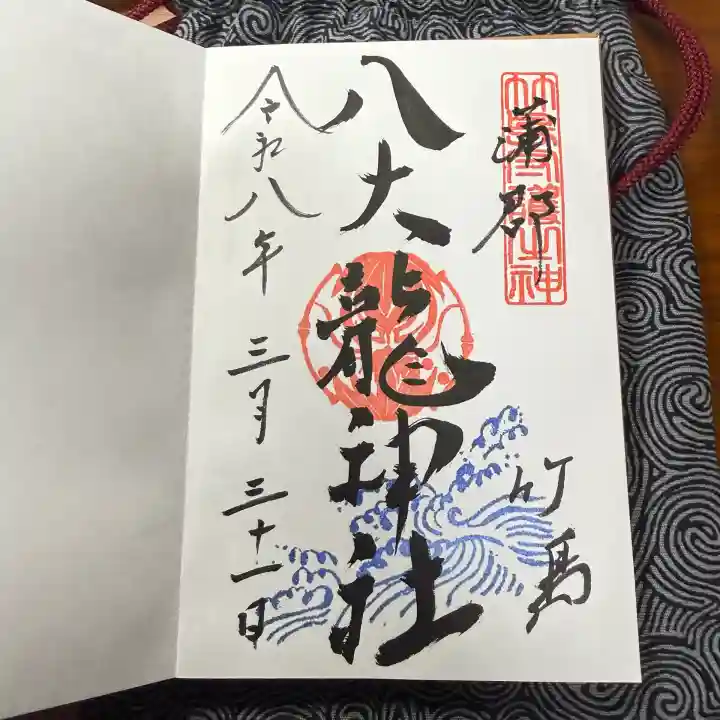 蒲郡
竹島
八大龍神社
令和八年 三月 三十一日